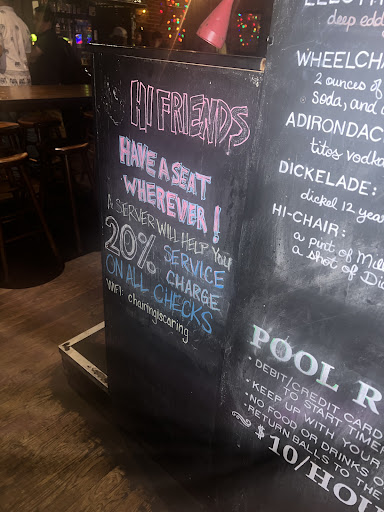 HI FRIENDS
HAVE A SEAT
WHEREVER!
A SERVER WILL HELP YOU
20% SERVICE
CHARGE
ON ALL CHECKS
WIFI: chairingiscaring
deep edd
WHEELCHA
2 ounces of
soda, and
ADIRONDAC
titos vodka
DICKELADE:
dickel 12 year
HI-CHAIR:
a pint of Mil
a shot of Di
POOL R
- DEBIT/CREDIT CARD
TO START TIME
- KEEP UP WITH YOUR
- NO FOOD OR DRINKS O
- RETURN BALLS TO THE
$10/HOU